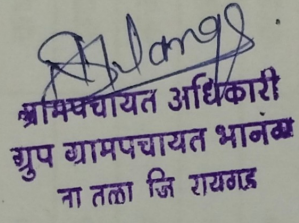 ग्रामपंचायत अधिकारी
ग्रुप ग्रामपचायत भानंग
ता तळा जि रायगड